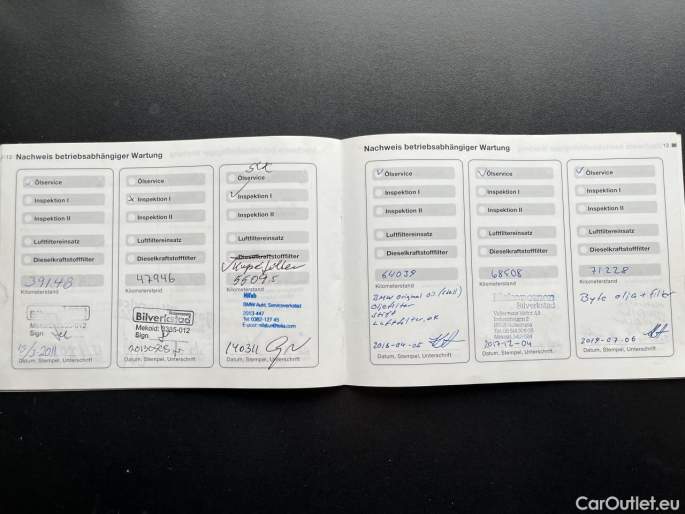 12 Nachweis betriebsabhängiger Wartung
Ölservice
Inspektion I
Inspektion II
Luftfiltereinsatz
Dieselkraftstofffilter
39148
Kilometerstand
Sign
Datum, Stempel, Unterschrift
Ölservice
x Inspektion I
Inspektion II
Luftfiltereinsatz
Dieselkraftstofffilter
47946
Kilometerstand
Bilverkstad
Sign
20130505
Datum, Stempel, Unterschrift
Ölservice
Inspektion I
Inspektion II
Luftfiltereinsatz
Dieselkraftstofffilter
Kilometerstand
BMW Aukt. Serviceverkstad
2013-447
Tel 0382-127 45
140311
Datum, Stempel, Unterschrift
Nachweis betriebsabhängiger Wartung 13
Ölservice
Inspektion I
Inspektion II
Luftfiltereinsatz
Dieselkraftstofffilter
64039
Kilometerstand
BMW Original
Oljefilter
Luftfilter ok
2016-04-05
Datum, Stempel, Unterschrift
Ölservice
Inspektion I
Inspektion II
Luftfiltereinsatz
Dieselkraftstofffilter
68508
Kilometerstand
Bilverkstad
2017-12-04
Datum, Stempel, Unterschrift
Ölservice
Inspektion I
Inspektion II
Luftfiltereinsatz
Dieselkraftstofffilter
71228
Kilometerstand
Byte olja + filter
2019-07-06
Datum, Stempel, Unterschrift
CarOutlet.eu